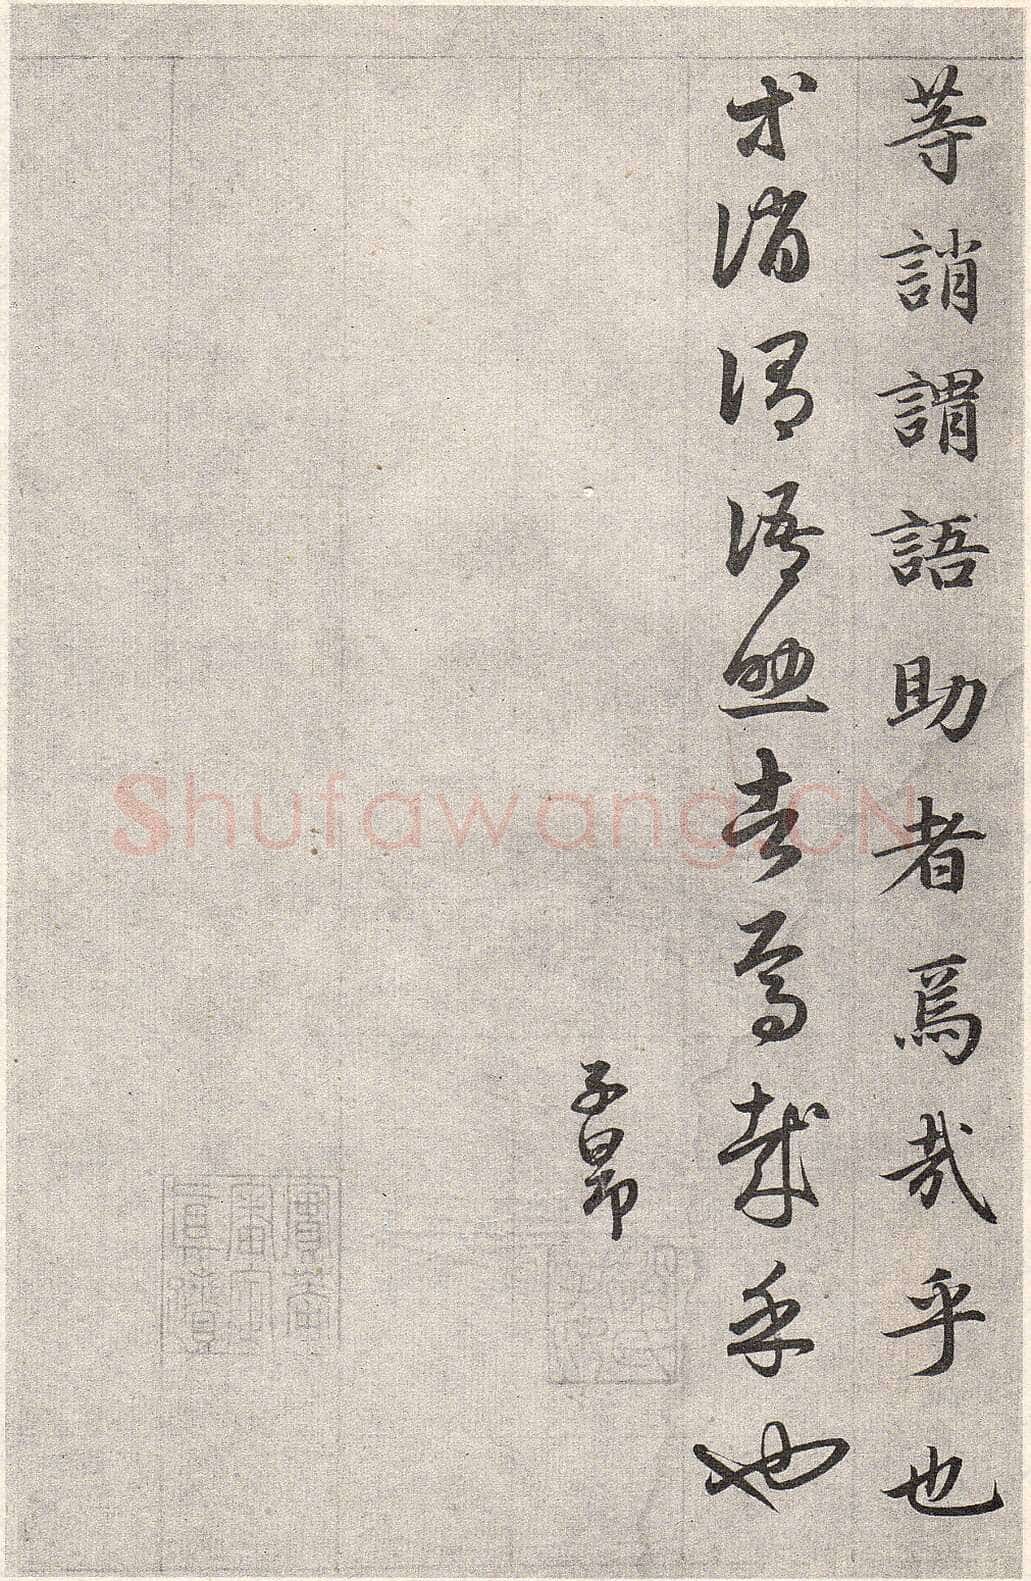 等誚謂語助者焉哉乎也
等誚謂語助者焉哉乎也
子昂
Shufawang.CN